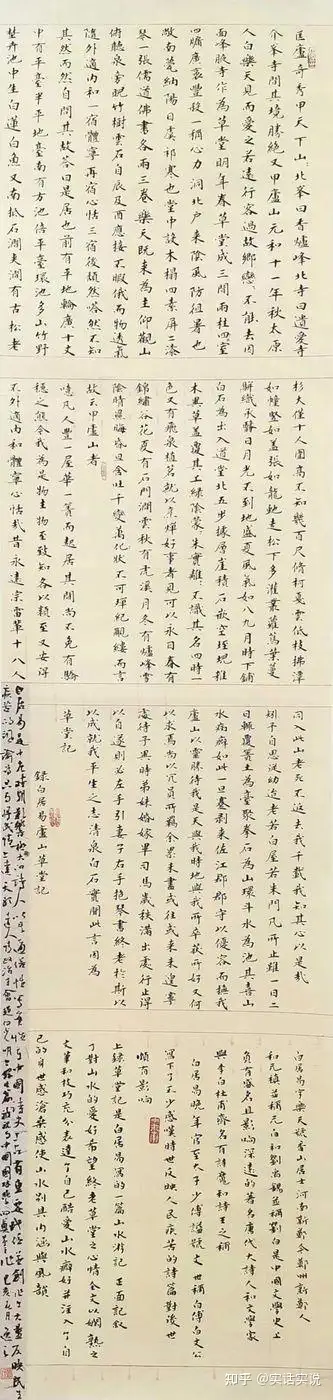 匡庐奇秀甲天下山北峯曰香爐峰北寺曰遺愛寺
介峯寺間其境勝絕又甲廬山元和十一年秋太原
人白樂天見而愛之若遠行客過故鄉戀不能去因
面峰腋寺作為草堂明年春草堂成三間兩柱四室
四牖廣袤豐殺一稱心力洞北戶來陰風防徂暑也
敞南甍納陽日虞祁寒也堂中設木榻四素屏二漆
琴一張儒道佛書各兩三卷樂天既來為主仰觀山
俯聽泉旁睨竹樹雲石自辰及酉應接不暇俄而物誘氣
隨外適內和一宿體寧再宿心恬三宿後頹然嗒然不知
其然而然自問其故答曰是居也前有平地輪廣十丈
中有平臺半平地臺南有方池倍平臺環池多山竹野
卉池中生白蓮白魚又南抵石澗夾澗有古松老
杉大僅十人圍高不知幾百尺修柯戛雲低枝拂潭
如幢豎如蓋張如龍蛇走松下多灌叢蘿蔦葉蔓
駢織承翳日月光不到地盛夏風氣如八九月時下鋪
白石為出入道堂北五步據層崖積石嵌空垤堄雜
木異草蓋覆其上綠陰蒙蒙朱實離離不識其名四時一
色又有飛泉植茗就以烹燀好事者見可以永日春有
錦繡谷花夏有石門澗雲秋有虎溪月冬有爐峰雪
陰晴顯晦昏旦含吐千變萬化狀不可殫紀覼縷而言
故云甲廬山者
噫凡人豐一屋華一簀而起居其間尚不免有驕
穩之態今我為是物主物至致知各以類至又安得
不外適內和體寧心恬哉昔永遠宗雷輩十八人
同入此山老死不返去我千載我知其心以是哉
矧予自思從幼迨老若白屋若朱門凡所止雖一日二
日輒覆簣土為臺聚拳石為山環斗水為池其喜山
水病癖如此一旦蹇剝來佐江郡郡守以優容而撫我
廬山以靈勝待我是天與我時地與我所卒獲所好又何
以求焉尚以冗員所羈余累未盡或往或來未遑寧
處待予異時弟妹婚嫁畢司馬歲秩滿出處行止得
以自遂則必左手引妻子右手抱琴書終老於斯以
以成就我平生之志清泉白石實聞此言因為
草堂記
錄白居易廬山草堂記
白居易字樂天號香山居士河南新鄭今鄭州新鄭人
和元稹並稱元白和劉禹錫並稱劉白是中國文學史上
負有盛名且影響深遠的著名唐代大詩人和文學家
與李白杜甫齊名有詩魔和詩王之稱
白居易晚年官至太子少傅謚號文世稱白傅白文公
寫下了不少感嘆時世反映人民疾苦的詩篇對後世
頗有影響
上錄草堂記是白居易寫的一篇山水游記正面記敘
了對山水的愛好希望終老草堂之心情全文以嫻熟之
文筆和技巧充分表達了自己酷愛山水癖好並注入了自
己的身世感滄桑感使山水別具內涵與風韻
知乎 @实话实说